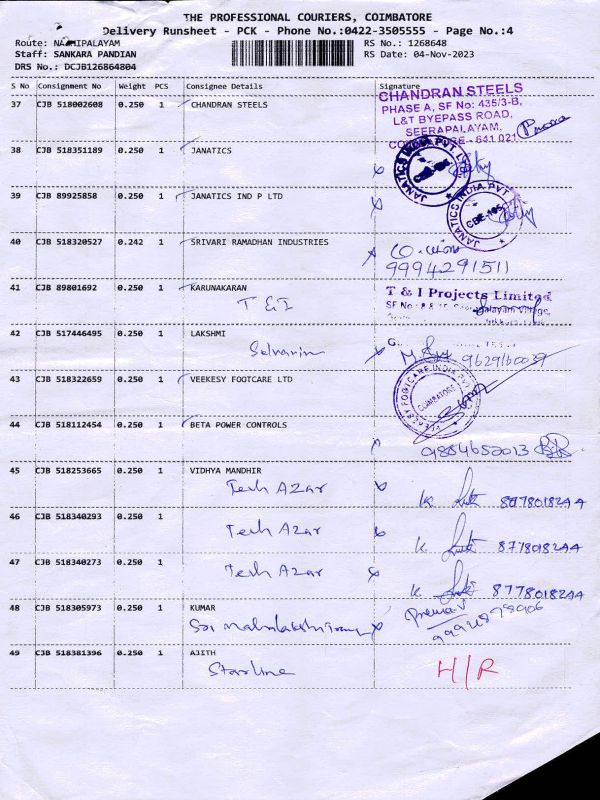 THE PROFESSIONAL COURIERS, COIMBATORE
Delivery Runsheet - PCK - Phone No.:0422-3505555 - Page No.:4
Route: NAMIPALAYAM
RS No.: 1268648
Staff: SANKARA PANDIAN
RS Date: 04-Nov-2023
DRS No.: DCJB126864804
S No Consignment No Weight PCS Consignee Details Signature
37 CJB 518002608 0.250 1 CHANDRAN STEELS
CHANDRAN STEELS
PHASE A, SF No: 435/3-B,
L&T BYEPASS ROAD,
SEERAPALAYAM,
COIMBATORE - 641 021
38 CJB 518351189 0.250 1 JANATICS
JANATICS INDIA PVT. LTD
39 CJB 89925858 0.250 1 JANATICS IND P LTD
JANATICS INDIA PVT
CBE-105
40 CJB 518320527 0.242 1 SRIVARI RAMADHAN INDUSTRIES
9994291511
41 CJB 89801692 0.250 1 KARUNAKARAN
T & I
T & I Projects Limited
42 CJB 517446495 0.250 1 LAKSHMI
9629160039
43 CJB 518322659 0.250 1 VEEKESY FOOTCARE LTD
COIMBATORE
44 CJB 518112454 0.250 1 BETA POWER CONTROLS
9884652013
45 CJB 518253665 0.250 1 VIDHYA MANDHIR
Tech Azar
K 8778018244
46 CJB 518340293 0.250 1
Tech Azar
K 8778018244
47 CJB 518340273 0.250 1
Tech Azar
K 8778018244
48 CJB 518305973 0.250 1 KUMAR
Prema.V
49 CJB 518381396 0.250 1 AJITH
Starline
H/R